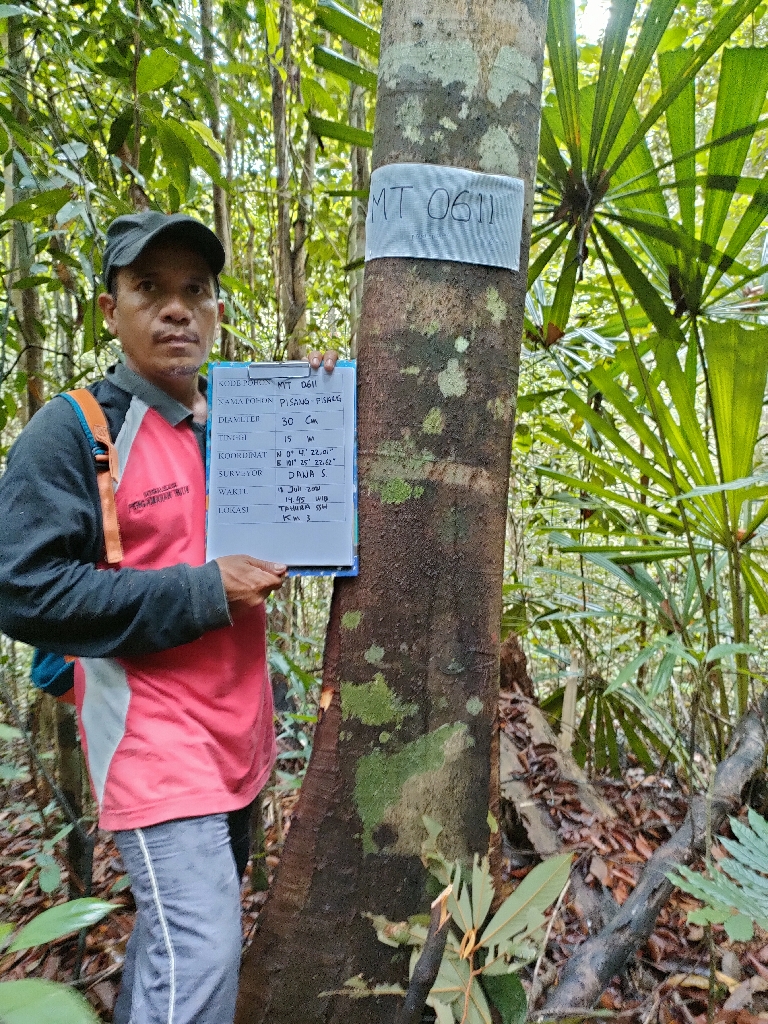 MT 0611
KODE POHON MT 0611
NAMA POHON PISANG-PISANG
DIAMETER 30 Cm
TINGGI 15 m
KOORDINAT N 0° 4' 22.01"
E 101° 25' 22.62"
SURVEYOR DANA S.
WAKTU Juli 2021
14.45 WIB
LOKASI TAHURA SSH
Km 3